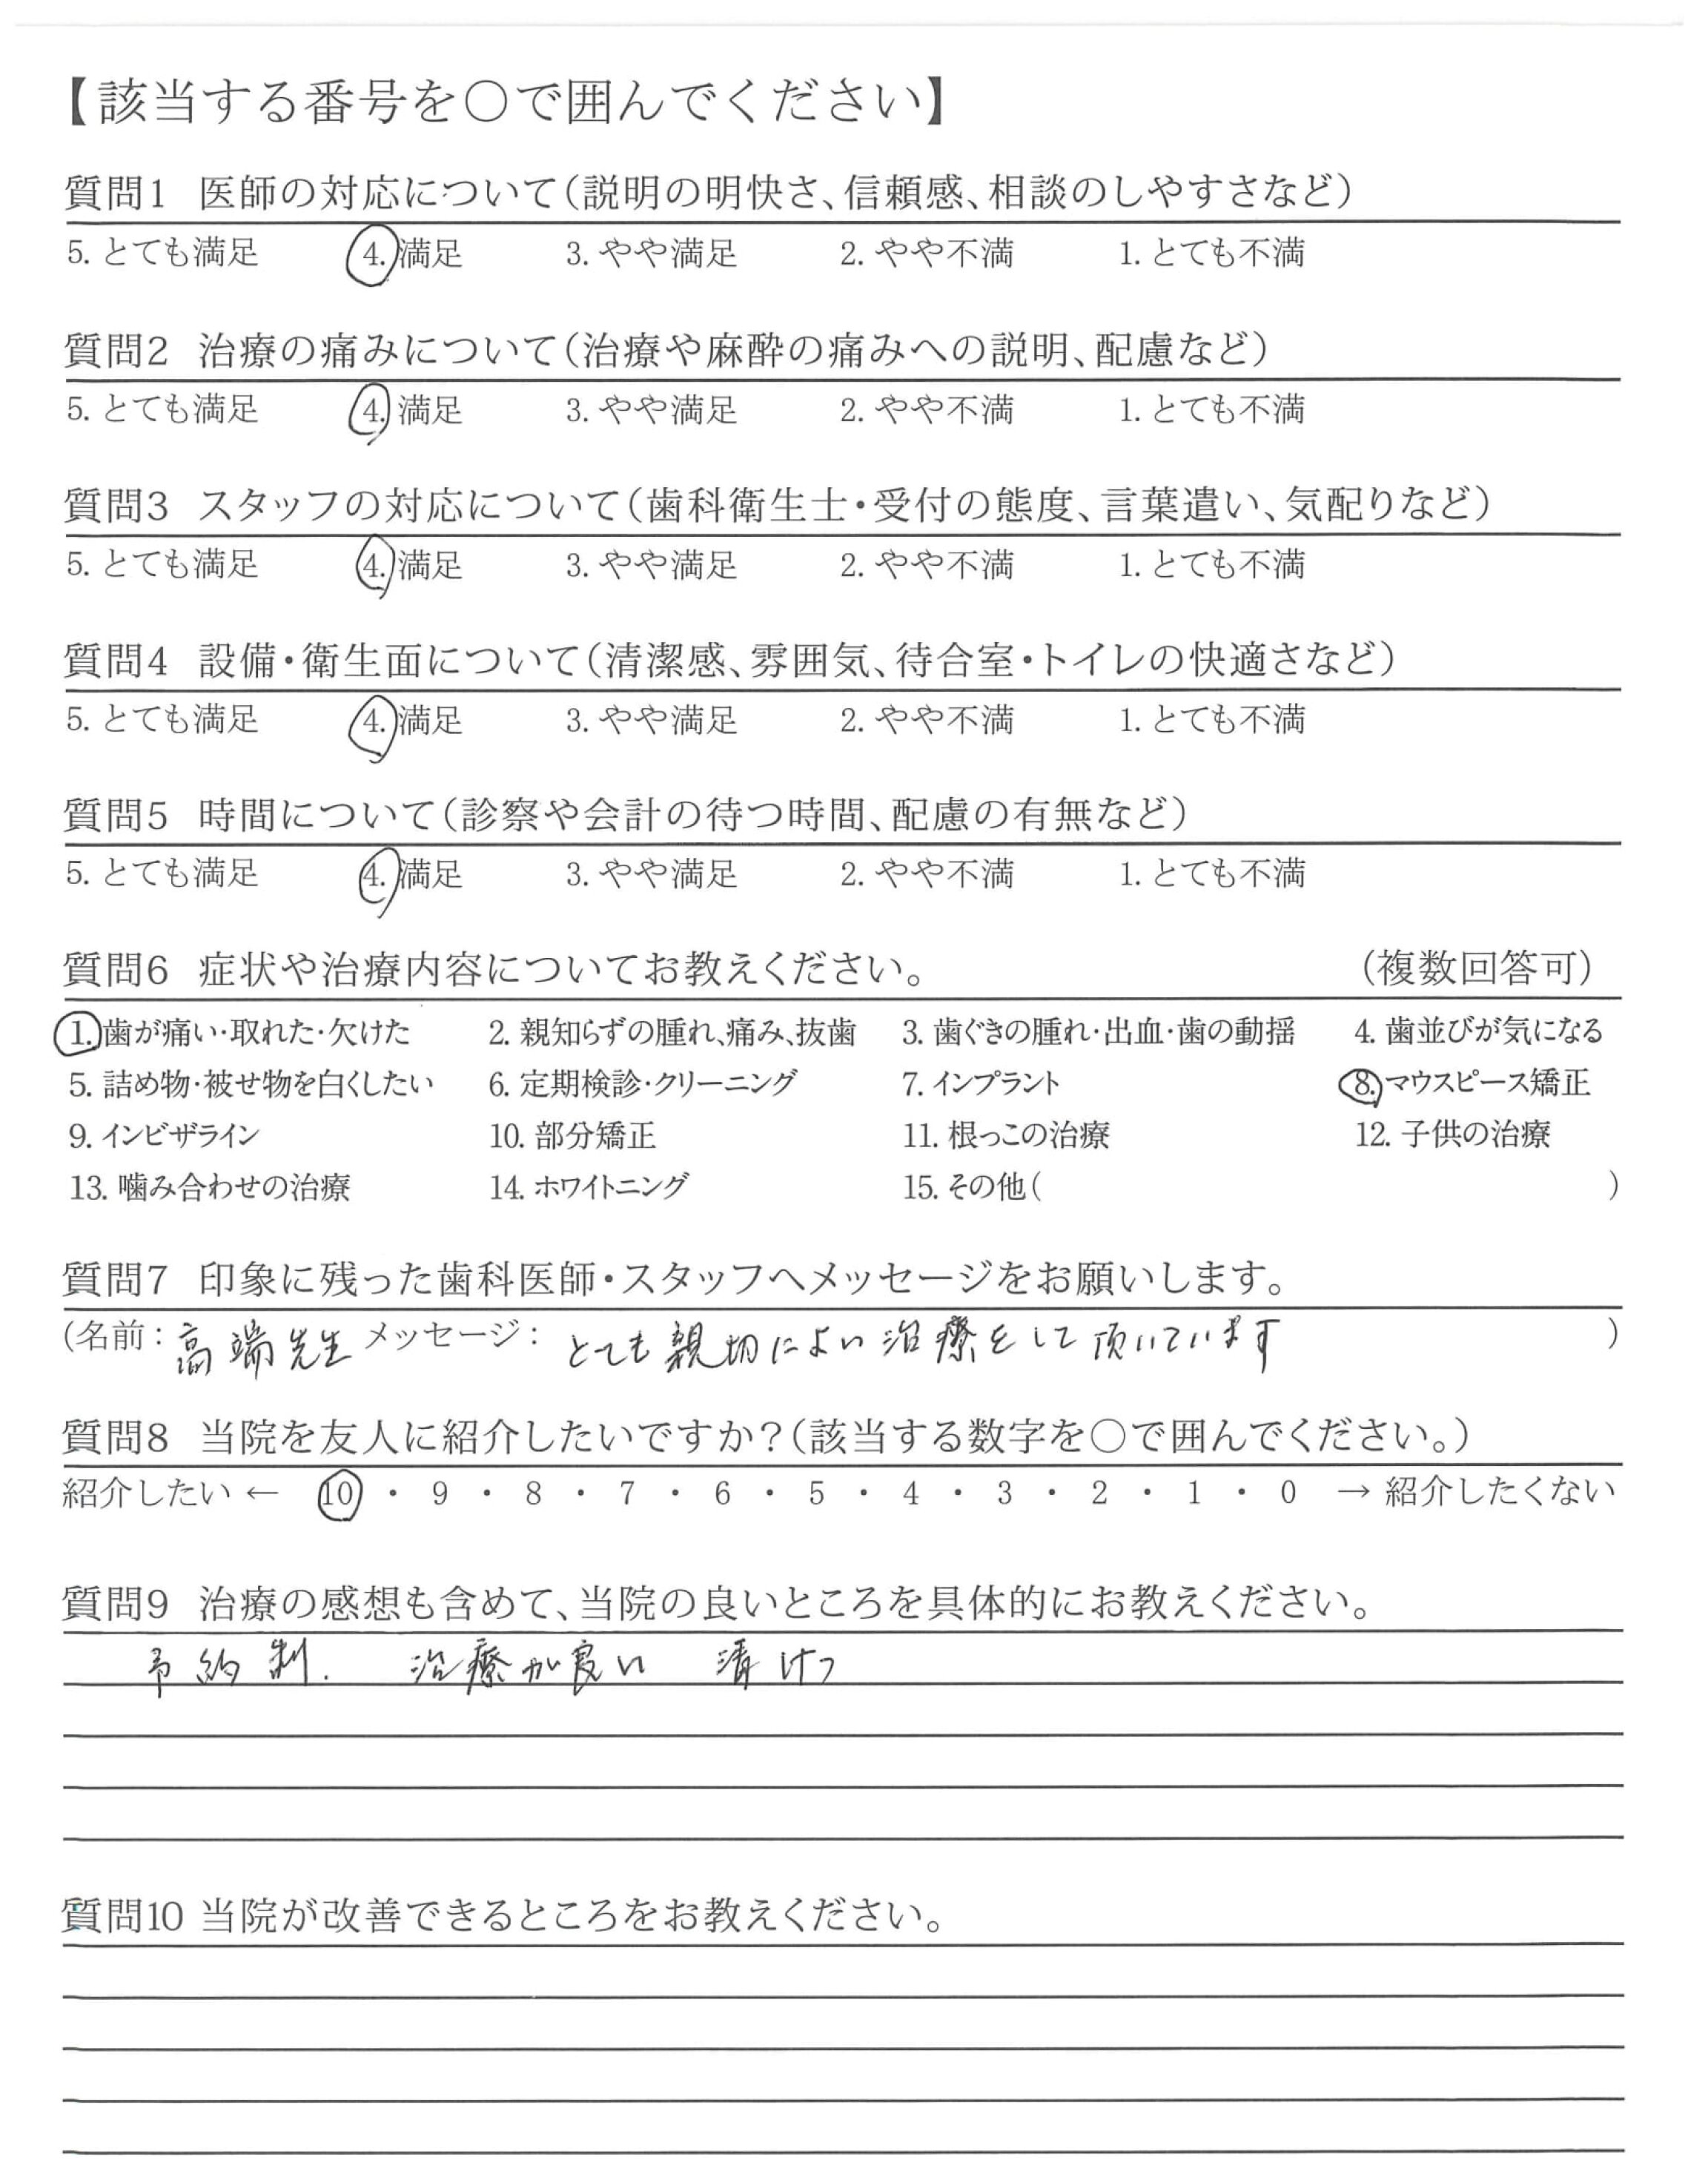 【該当する番号を○で囲んでください】
質問1 医師の対応について(説明の明快さ、信頼感、相談のしやすさなど)
5. とても満足 4. 満足 3. やや満足 2. やや不満 1. とても不満
質問2 治療の痛みについて(治療や麻酔の痛みへの説明、配慮など)
5. とても満足 4. 満足 3. やや満足 2. やや不満 1. とても不満
質問3 スタッフの対応について(歯科衛生士・受付の態度、言葉遣い、気配りなど)
5. とても満足 4. 満足 3. やや満足 2. やや不満 1. とても不満
質問4 設備・衛生面について(清潔感、雰囲気、待合室・トイレの快適さなど)
5. とても満足 4. 満足 3. やや満足 2. やや不満 1. とても不満
質問5 時間について(診察や会計の待つ時間、配慮の有無など)
5. とても満足 4. 満足 3. やや満足 2. やや不満 1. とても不満
質問6 症状や治療内容についてお教えください。 (複数回答可)
1. 歯が痛い・取れた・欠けた 2. 親知らずの腫れ、痛み、抜歯 3. 歯ぐきの腫れ・出血・歯の動揺 4. 歯並びが気になる
5. 詰め物・被せ物を白くしたい 6. 定期検診・クリーニング 7. インプラント 8. マウスピース矯正
9. インビザライン 10. 部分矯正 11. 根っこの治療 12. 子供の治療
13. 噛み合わせの治療 14. ホワイトニング 15. その他( )
質問7 印象に残った歯科医師・スタッフへメッセージをお願いします。
(名前: 高端先生 メッセージ: とても親切によい治療をして頂いています )
質問8 当院を友人に紹介したいですか?(該当する数字を○で囲んでください。)
紹介したい ← 10 ・ 9 ・ 8 ・ 7 ・ 6 ・ 5 ・ 4 ・ 3 ・ 2 ・ 1 ・ 0 → 紹介したくない
質問9 治療の感想も含めて、当院の良いところを具体的にお教えください。
予約制. 治療が良い 清けつ
質問10 当院が改善できるところをお教えください。